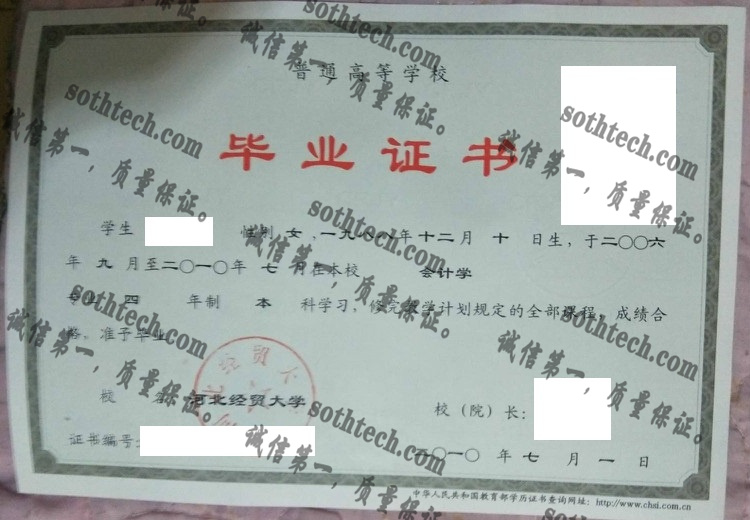 普通高等学校
毕业证书
学生 性别 女 、一九八八年 十二 月 十 日生，于二〇〇六
年 九 月至二〇一〇年 七 月在本校 会计学
专业 四 年制 本 科学习，修完教学计划规定的全部课程，成绩合
格，准予毕业。
校 名：河北经贸大学
校（院）长：
证书编号：
二〇一〇 年 七 月 一 日
中华人民共和国教育部学历证书查询网址：http://www.chsi.com.cn
sothtech.com
诚信第一，质量保证。
sothtech.com
诚信第一，质量保证。
sothtech.com
诚信第一，质量保证。
sothtech.com
诚信第一，质量保证。
sothtech.com
诚信第一，质量保证。
sothtech.com
诚信第一，质量保证。
sothtech.com
诚信第一，质量保证。
sothtech.com
诚信第一，质量保证。